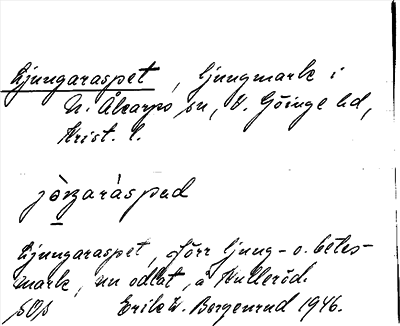 Ljungaraspet, ljungmark i
N. Åkarps sn, V. Göinge hd,
Krist. l.
Ljungaraspet, förr ljung- o. betes-
mark, nu odlat, å Hulleröd.
Erik W. Borgenrud 1946.